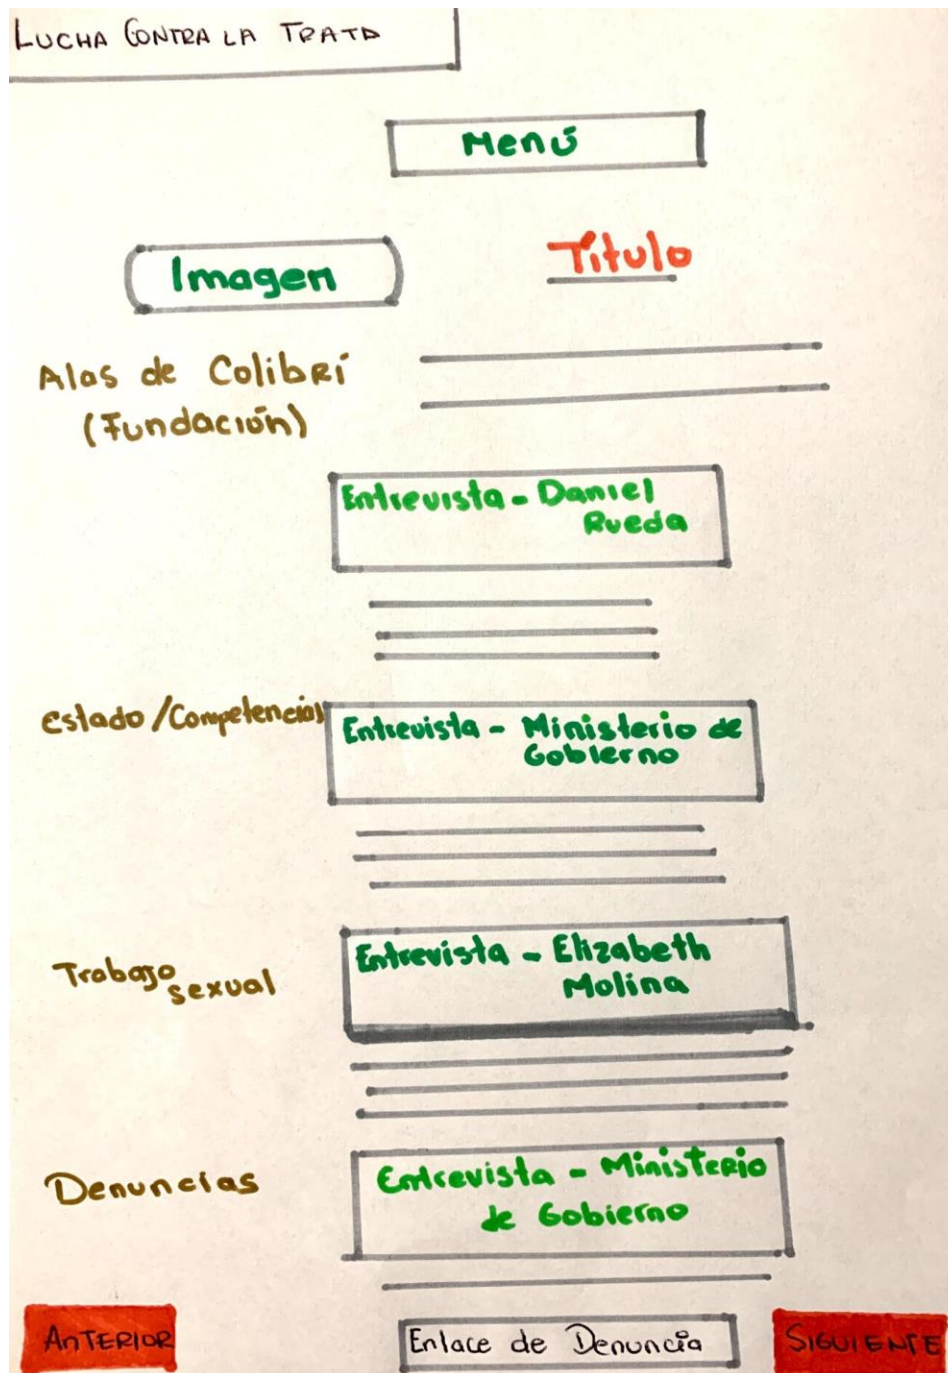 LUCHA CONTRA LA TRATA
Menú
Imagen
Título
Alas de Colibrí
(Fundación)
Entrevista - Daniel
Rueda
Estado/Competencias
Entrevista - Ministerio de
Gobierno
Trabajo
sexual
Entrevista - Elizabeth
Molina
Denuncias
Entrevista - Ministerio
de Gobierno
ANTERIOR
Enlace de Denuncia
SIGUIENTE